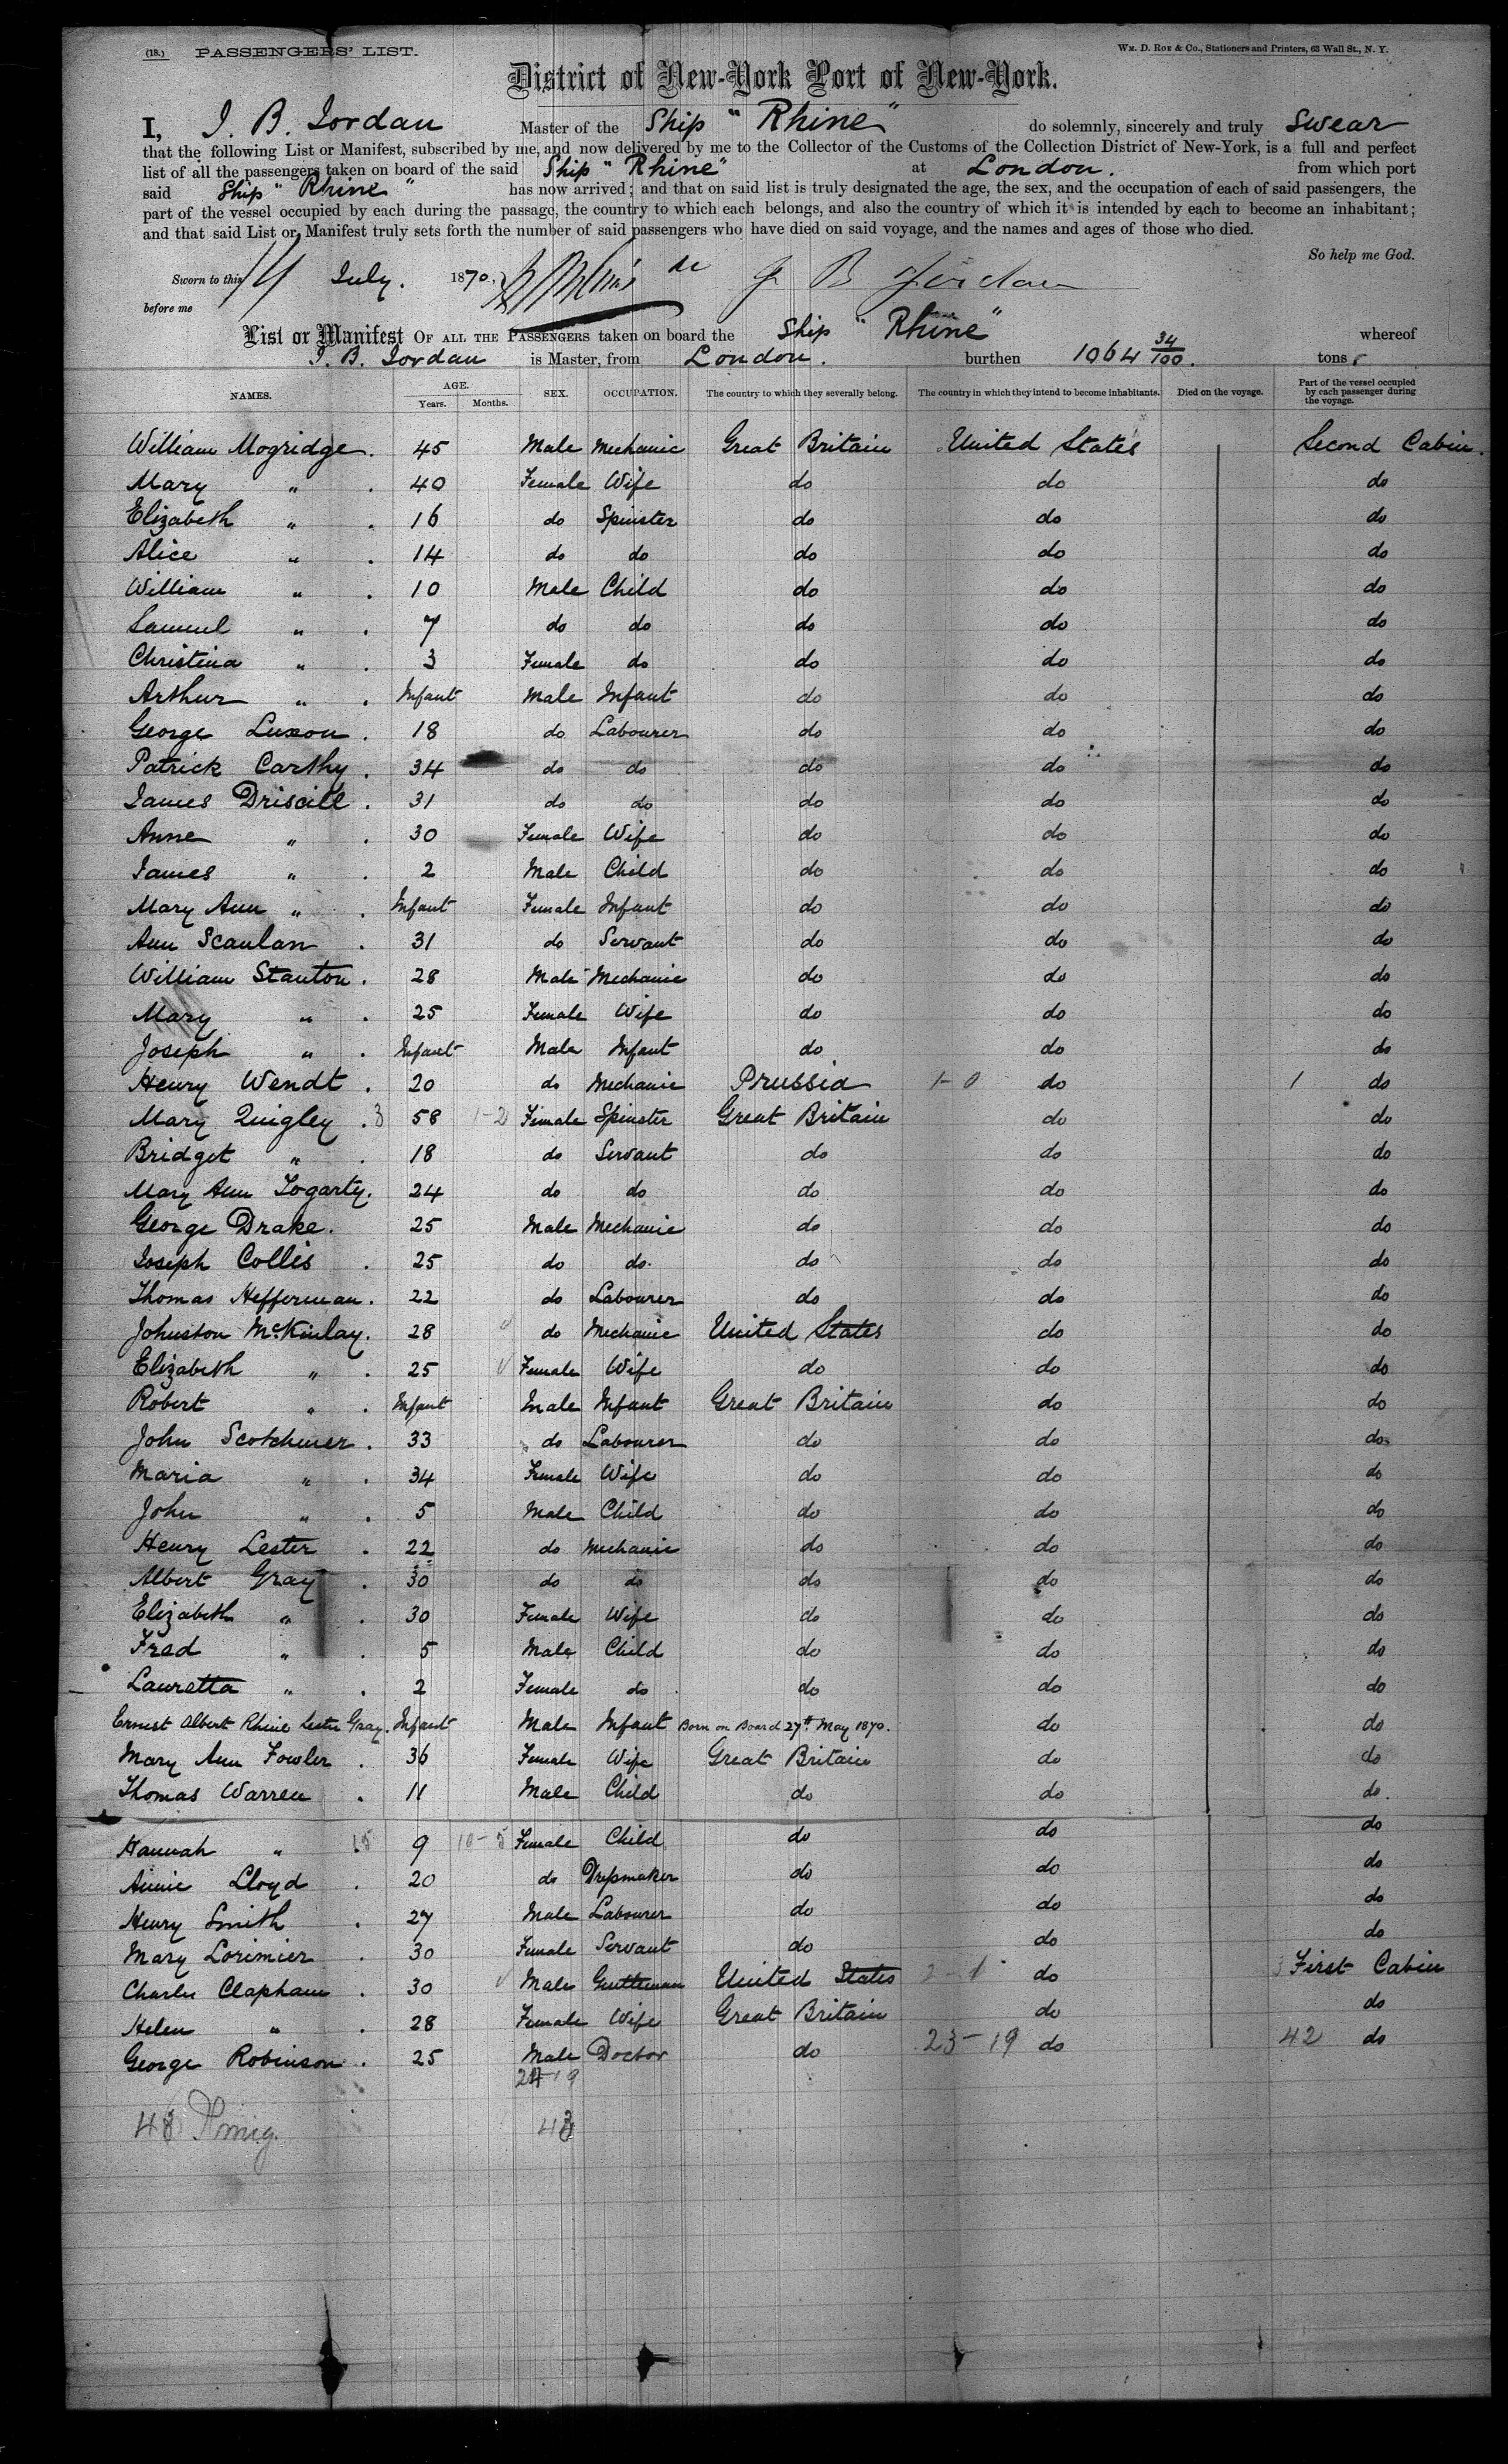 (18.) PASSENGERS' LIST. Wm. D. Roe & Co., Stationers and Printers, 63 Wall St., N. Y.
District of New-York Port of New-York.
I, J. B. Jordan Master of the Ship "Rhine" do solemnly, sincerely and truly Swear
that the following List or Manifest, subscribed by me, and now delivered by me to the Collector of the Customs of the Collection District of New-York, is a full and perfect
list of all the passengers taken on board of the said Ship "Rhine" at London. from which port
said Ship "Rhine" has now arrived; and that on said list is truly designated the age, the sex, and the occupation of each of said passengers, the
part of the vessel occupied by each during the passage, the country to which each belongs, and also the country of which it is intended by each to become an inhabitant;
and that said List or Manifest truly sets forth the number of said passengers who have died on said voyage, and the names and ages of those who died.
So help me God.
Sworn to this 14 July. 1870, J B Jordan
before me
List or Manifest OF ALL THE PASSENGERS taken on board the Ship "Rhine" whereof
J. B. Jordan is Master, from London. burthen 1064 34/100. tons
NAMES. AGE. Years. Months. SEX. OCCUPATION. The country to which they severally belong. The country in which they intend to become inhabitants. Died on the voyage. Part of the vessel occupied by each passenger during the voyage.
William Mogridge. 45 Male Mechanic Great Britain United States Second Cabin.
Mary " . 40 Female Wife do do do
Elizabeth " . 16 do Spinster do do do
Alice " . 14 do do do do do
William " . 10 Male Child do do do
Samuel " . 7 do do do do do
Christina " . 3 Female do do do do
Arthur " . Infant Male Infant do do do
George Luxon . 18 do Labourer do do do
Patrick Carthy . 34 do do do do do
James Driscill . 31 do do do do do
Anne " . 30 Female Wife do do do
James " . 2 Male Child do do do
Mary Ann " . Infant Female Infant do do do
Ann Scanlan . 31 do Servant do do do
William Stanton . 28 Male Mechanic do do do
Mary " . 25 Female Wife do do do
Joseph " . Infant Male Infant do do do
Henry Wendt . 20 do Mechanic Prussia 1-0 do 1 do
Mary Quigley . 3 58 1-2 Female Spinster Great Britain do do
Bridget " . 18 do Servant do do do
Mary Ann Fogarty. 24 do do do do do
George Drake. 25 Male Mechanic do do do
Joseph Collis . 25 do do. do do do
Thomas Hefferman. 22 do Labourer do do do
Johnston McKinlay. 28 do Mechanic United States do do
Elizabeth " . 25 Female Wife do do do
Robert " . Infant Male Infant Great Britain do do
John Scotchmer . 33 do Labourer do do do
Maria " . 34 Female Wife do do do
John " . 5 Male Child do do do
Henry Lester . 22 do Mechanic do do do
Albert Gray . 30 do do do do do
Elizabeth " . 30 Female Wife do do do
Fred " . 5 Male Child do do do
Lauretta " . 2 Female do do do do
Ernest Albert Rhine Lester Gray. Infant Male Infant Born on Board 27th May 1870. do do
Mary Ann Fowler . 36 Female Wife Great Britain do do
Thomas Warren . 11 Male Child do do do.
Hannah " 15 9 10-5 Female Child do do do
Annie Lloyd . 20 do Dressmaker do do do
Henry Smith . 27 Male Labourer do do do
Mary Lorimier . 30 Female Servant do do do
Charles Clapham . 30 Male Gentleman United States 2-1 do 3 First Cabin
Helen " . 28 Female Wife Great Britain do do
George Robinson . 25 Male Doctor do 23-19 do 42 do
24 19
43